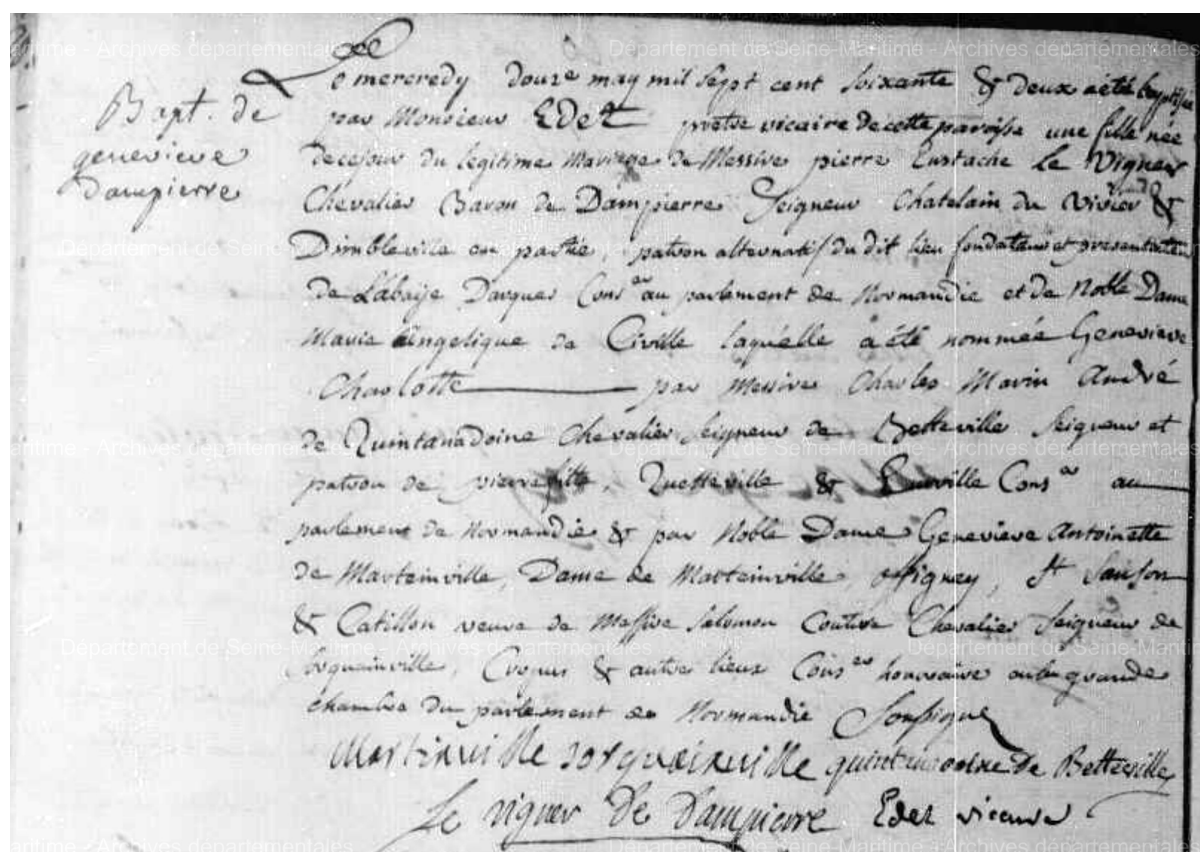 Bapt. de
genevieve
Dampierre
Le mercredy douze may mil sept cent soixante & deux a été baptisée
par Monsieur Edet pretre vicaire de cette paroisse une fille née
de ce jour du legitime mariage de Messire pierre Eustache Le Vigner
Chevalier Baron de Dampierre Seigneur Chatelain du Vivier &
Dimbleville en partie, patron alternatif du dit lieu fondateur et presentateur
de L'abaije Darques Cons.er au parlement de Normandie et de Noble Dame
Marie Angelique de Civille laquelle a été nommée Genevieve
Charlotte par Messire Charles Marin André
de Quintanadoine Chevalier Seigneur de Betteville Seigneur et
patron de pierrefitte, Quetteville & Eurville Cons.er au
parlement de Normandie & par Noble Dame Genevieve Antoinette
de Marteinville, Dame de Marteinville, St Sanson
& Catillon veuve de Messire Salomon Couture Chevalier Seigneur de
Sorquainville, Cropus & autre lieux Cons.er honoraire en la grande
chambre du parlement de Normandie Soussigné
Martinville Sorquainville quintanadoine De Betteville
Le vigner De Dampierre Edet vicaire
Département de Seine-Maritime - Archives départementales